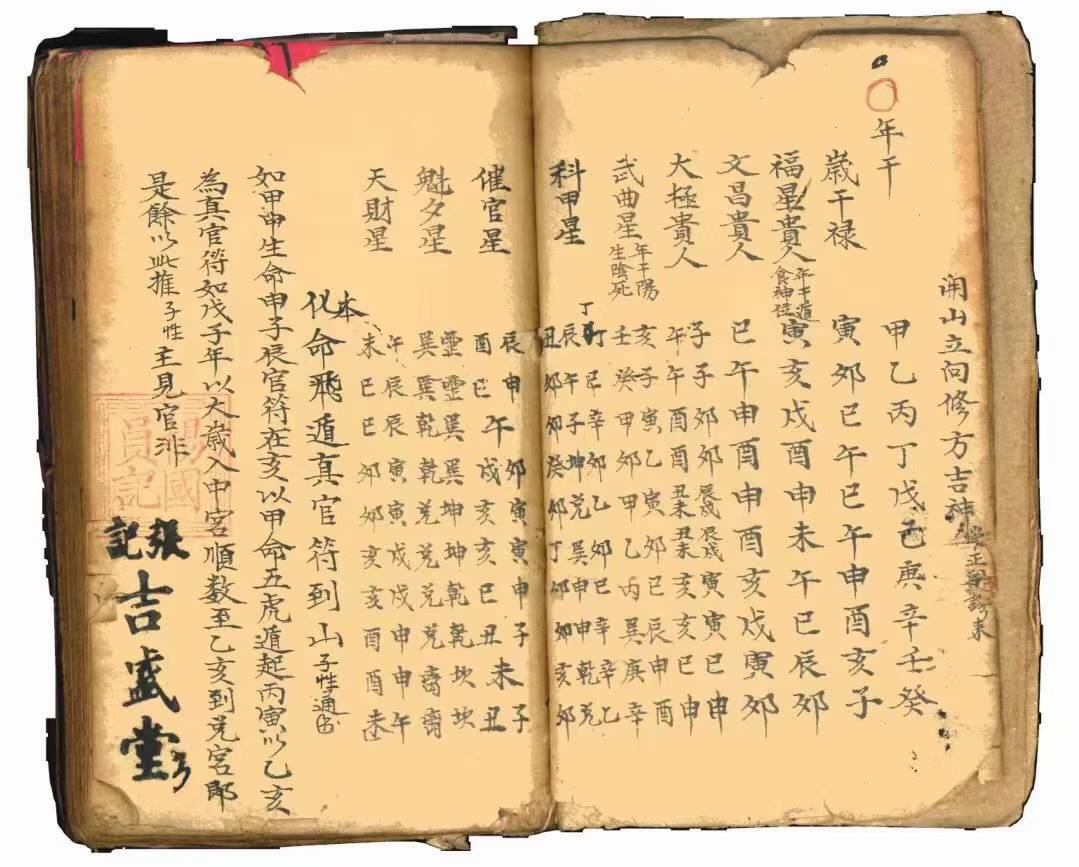 開山立向修方吉神
年干 甲乙丙丁戊己庚辛壬癸
歲干禄 寅卯巳午巳午申酉亥子
福星貴人 年干遁食神位 寅亥戌酉申未午巳辰卯
文昌貴人 巳午申酉申酉亥戌寅卯
大極貴人 子子卯卯辰戌辰戌寅寅巳申
午午酉酉丑未丑未亥亥巳申
武曲星 年干陽生陰死 亥子寅乙寅卯巳辰申酉
壬癸甲卯甲乙丙巽庚辛
科甲星 巳辛卯乙卯巳辛辛乙
辰午子坤兑巽申申乾
丑卯卯癸卯丁卯卯亥卯
催官星 辰申午卯寅寅申子未子
酉巳戌亥亥巳丑丑
魁夕星 靈靈巽巽坤坤乾乾坎坎
巽巽乾乾兑兑兑兑
天財星 午辰辰寅寅戌戌申申午
未巳巳卯卯亥亥酉酉未
本化命飛遁真官符到山 子性通书
如甲申生命申子辰官符在亥以甲命五虎遁起丙寅以乙亥
為真官符如戊子年以大歲入中宮順数至乙亥到兑宮即
是餘以此推子性主見官非
張記
吉盛堂
國
員記